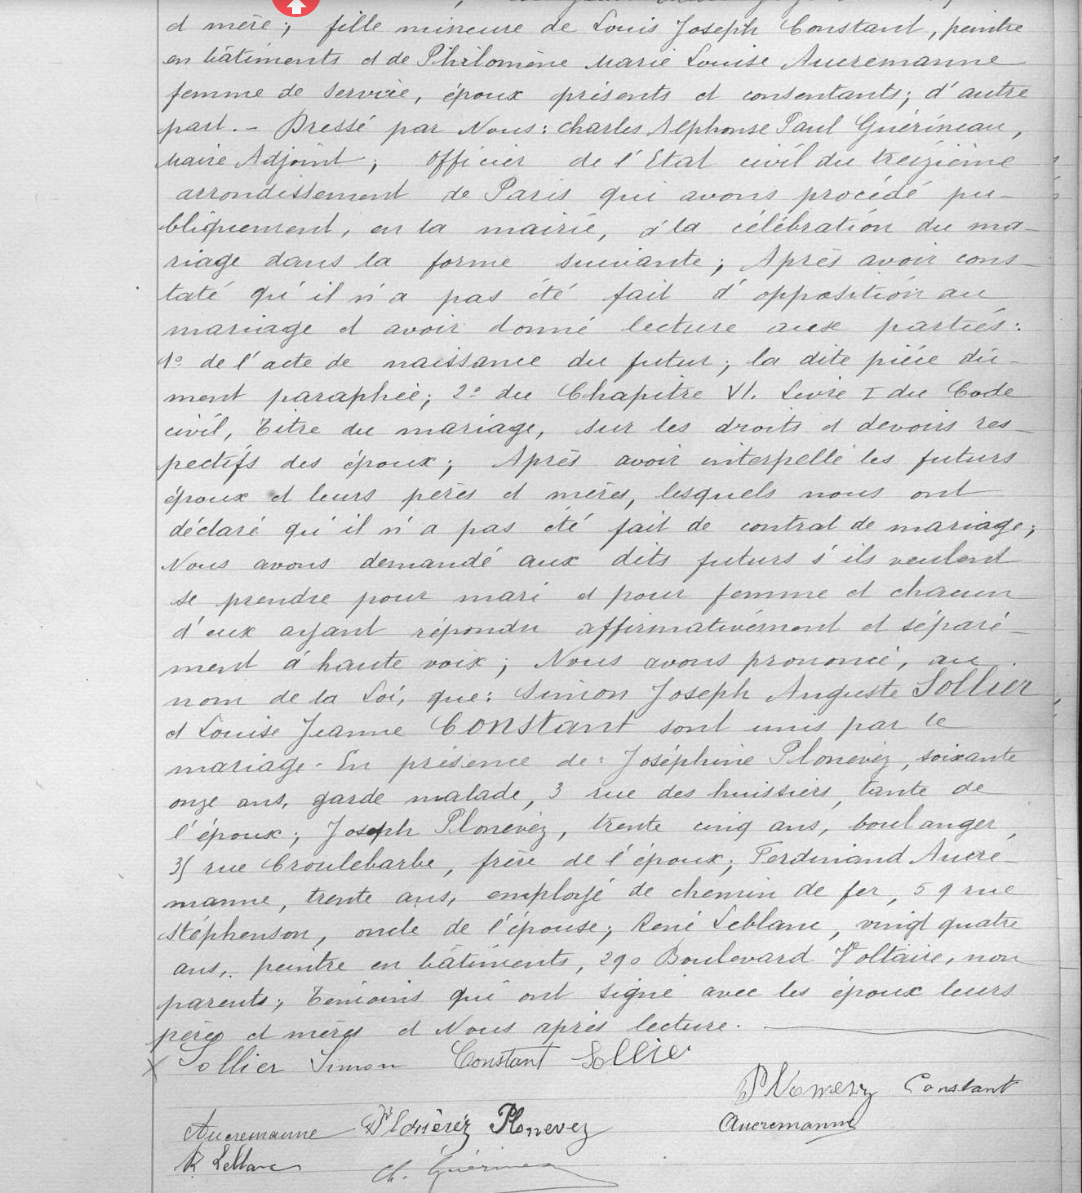 et mère; fille mineure de Louis Joseph Constant, peintre
en bâtiments et de Philomène Marie Louise Aucremanne
femme de service, époux présents et consentants; d'autre
part. - Dressé par Nous: Charles Alphonse Paul Guérineau,
Maire Adjoint, Officier de l'Etat civil du treizième
arrondissement de Paris qui avons procédé pu-
bliquement, en la mairie, à la célébration du ma-
riage dans la forme suivante; Après avoir cons-
taté qu'il n'a pas été fait d'opposition au
mariage et avoir donné lecture aux parties:
1° de l'acte de naissance du futur, la dite pièce dû-
ment paraphée; 2° du Chapitre VI. Livre I du Code
civil, Titre du mariage, sur les droits et devoirs res-
pectifs des époux; Après avoir interpellé les futurs
époux et leurs pères et mères, lesquels nous ont
déclaré qu'il n'a pas été fait de contrat de mariage;
Nous avons demandé aux dits futurs s'ils veulent
se prendre pour mari et pour femme et chacun
d'eux ayant répondu affirmativement et séparé-
ment à haute voix; Nous avons prononcé, au
nom de la Loi, que: Simon Joseph Auguste Sollier
et Louise Jeanne Constant sont unis par le
mariage. En présence de: Joséphine Plonévez, soixante
onze ans, garde malade, 3 rue des huissiers, tante de
l'époux; Joseph Plonévez, trente cinq ans, boulanger,
35 rue Croulebarbe, frère de l'époux; Ferdinand Aucre-
manne, trente ans, employé de chemin de fer, 59 rue
Stéphenson, oncle de l'épouse; René Leblanc, vingt quatre
ans, peintre en bâtiments, 290 Boulevard Voltaire, non
parents; Témoins qui ont signé avec les époux leurs
pères et mères et Nous après lecture.
Sollier Simon Constant Sollier
Plonevez Constant
Aucremanne Plonévéz Plonevez Aucremanne
R Leblanc Ch. Guérineau